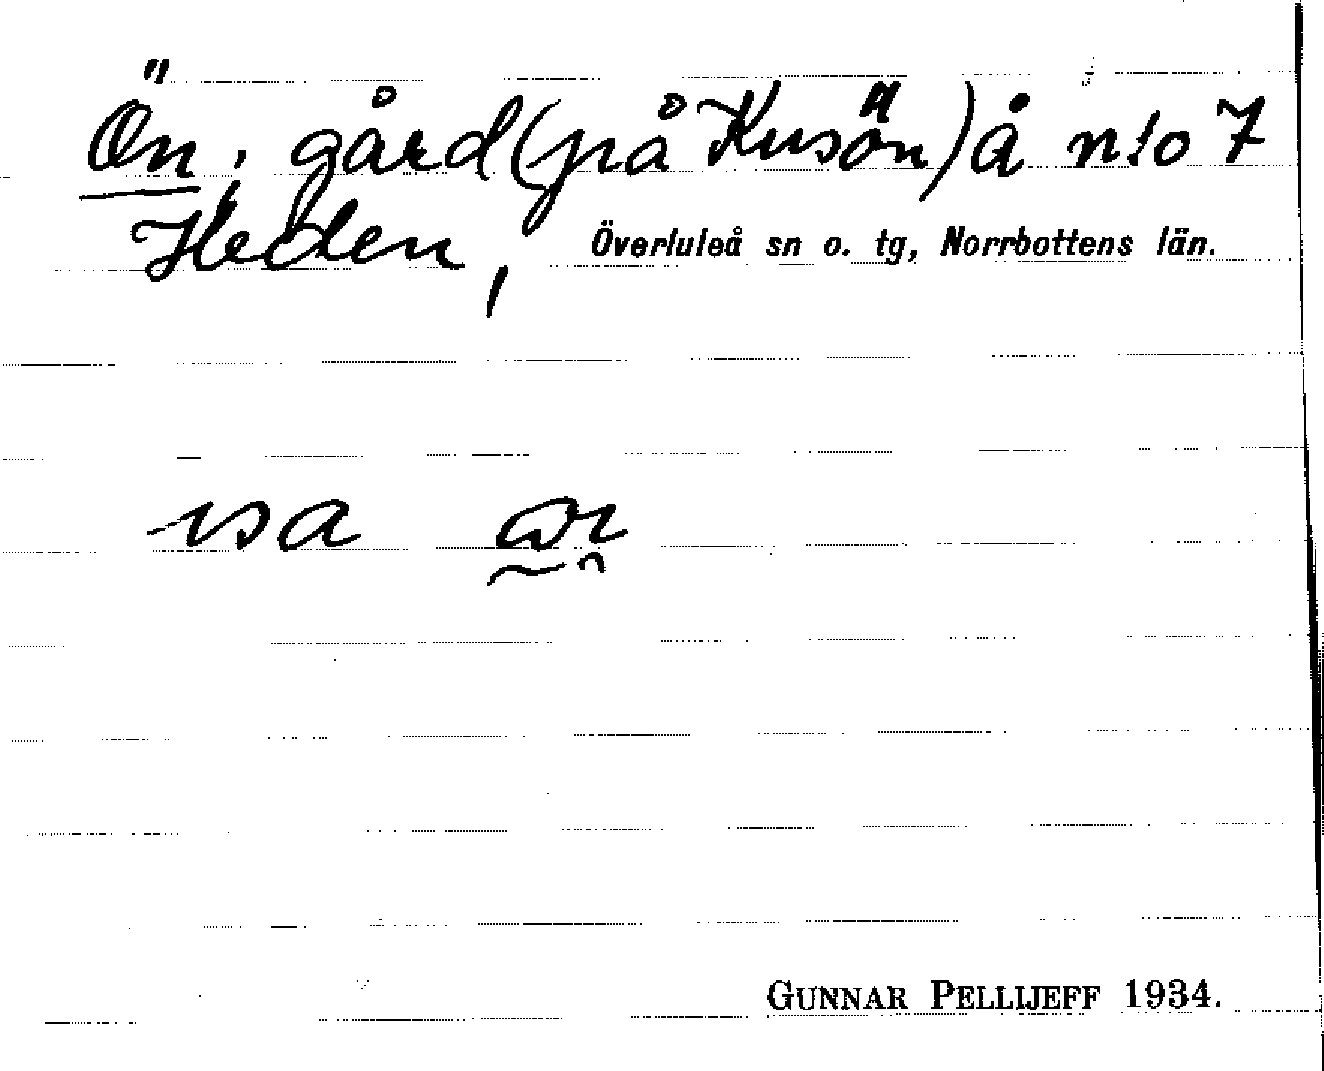 Ön, gård (på Kusön) å n:o 7
Heden, Överluleå sn o. tg, Norrbottens län.
GUNNAR PELLIJEFF 1934.